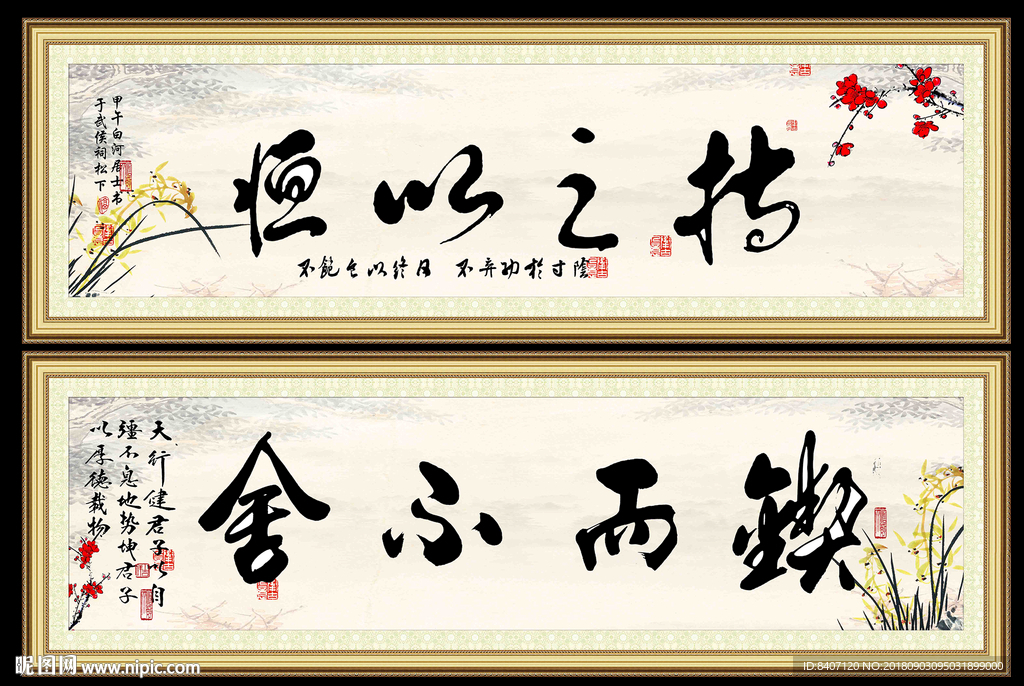 持之以恒
不飽食以终日 不弃功於寸陰
甲午白河居士书
于武侯祠松下
鍥而不舍
天行健君子以自
疆不息地势坤君子
以厚德载物
昵图网 www.nipic.com
ID:8407120 NO:20180903095031899000